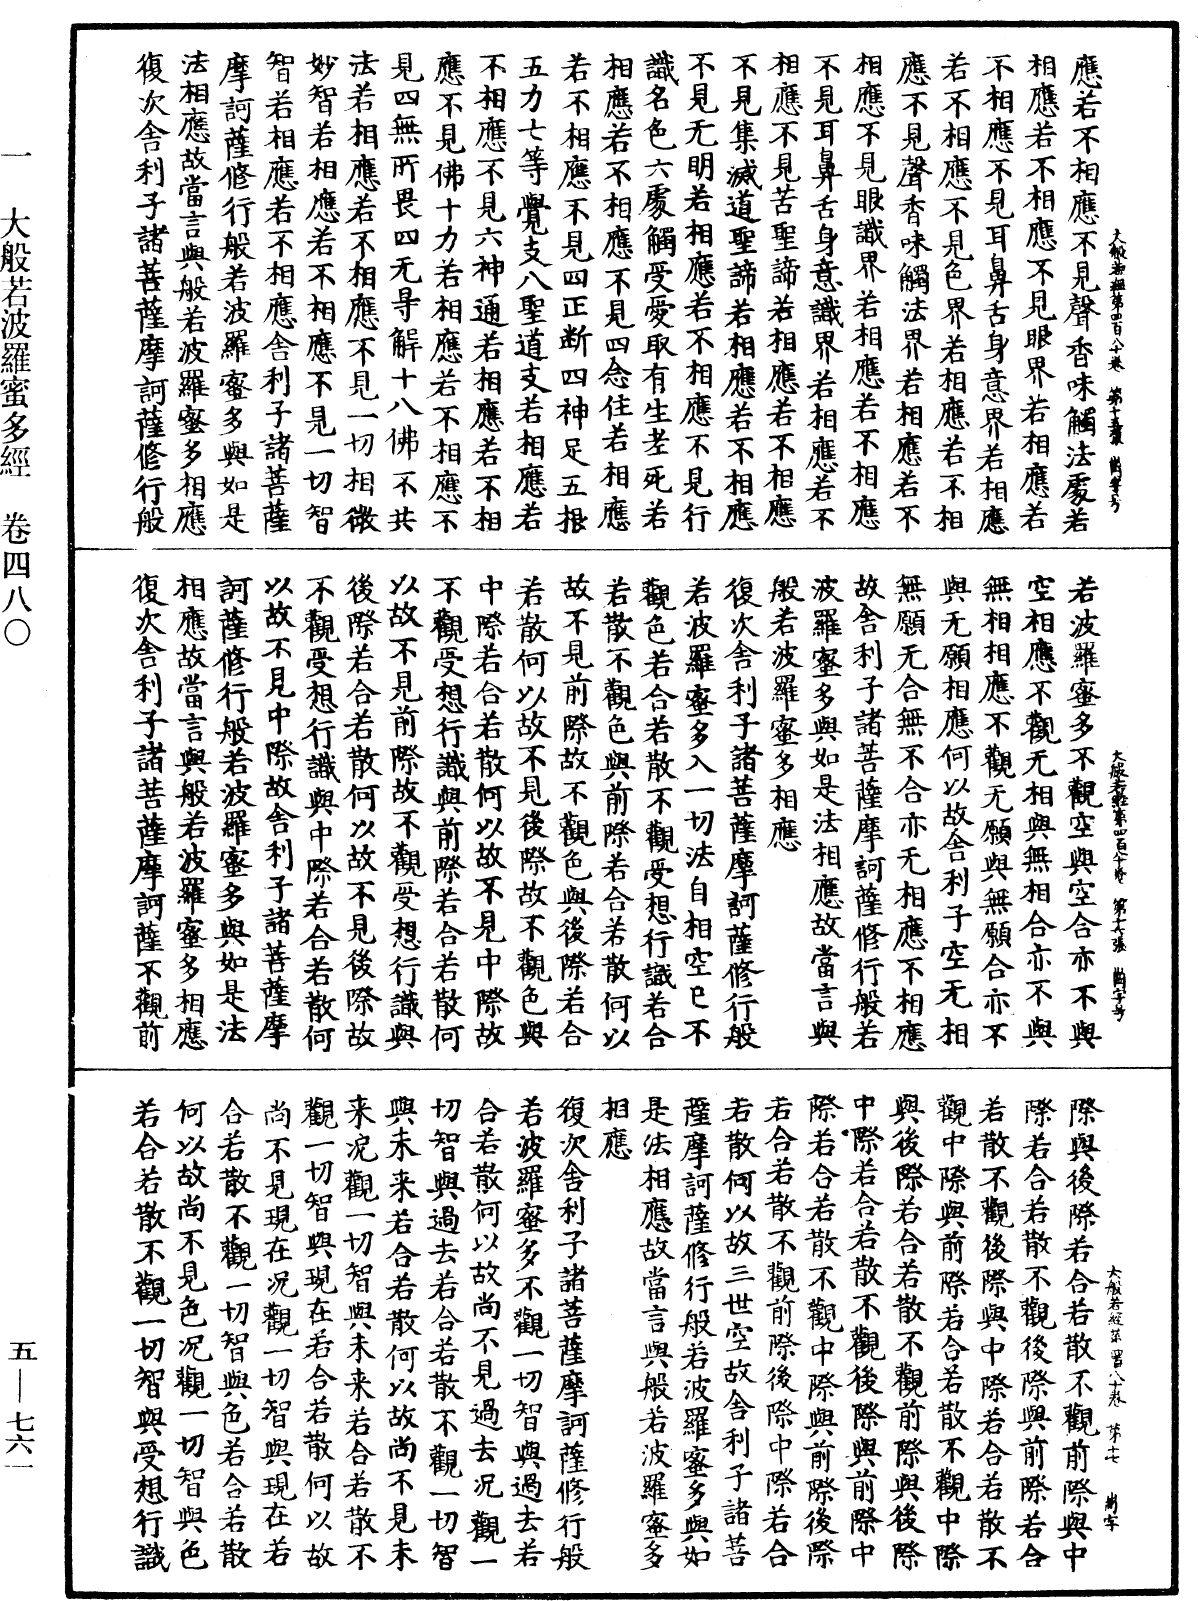 應若不相應不見聲香味觸法處若
相應若不相應不見眼界若相應若
不相應不見耳鼻舌身意界若相應
若不相應不見色界若相應若不相
應不見聲香味觸法界若相應若不
相應不見眼識界若相應若不相應
不見耳鼻舌身意識界若相應若不
相應不見苦聖諦若相應若不相應
不見集滅道聖諦若相應若不相應
不見无明若相應若不相應不見行
識名色六處觸受愛取有生老死若
相應若不相應不見四念住若相應
若不相應不見四正断四神足五根
五力七等覺支八聖道支若相應若
不相應不見六神通若相應若不相
應不見佛十力若相應若不相應不
見四無所畏四无导解十八佛不共
法若相應若不相應不見一切相微
妙智若相應若不相應不見一切智
智若相應若不相應舍利子諸菩薩
摩訶薩修行般若波羅蜜多與如是
法相應故當言與般若波羅蜜多相應
復次舍利子諸菩薩摩訶薩修行般
大般若經第四百八十卷 第十五張
若波羅蜜多不觀空與空合亦不與
空相應不觀无相與無相合亦不與
無相相應不觀无願與無願合亦不
與无願相應何以故舍利子空无相
無願无合無不合亦无相應不相應
故舍利子諸菩薩摩訶薩修行般若
波羅蜜多與如是法相應故當言與
般若波羅蜜多相應
復次舍利子諸菩薩摩訶薩修行般
若波羅蜜多入一切法自相空已不
觀色若合若散不觀受想行識若合
若散不觀色與前際若合若散何以
故不見前際故不觀色與後際若合
若散何以故不見後際故不觀色與
中際若合若散何以故不見中際故
不觀受想行識與前際若合若散何
以故不見前際故不觀受想行識與
後際若合若散何以故不見後際故
不觀受想行識與中際若合若散何
以故不見中際故舍利子諸菩薩摩
訶薩修行般若波羅蜜多與如是法
相應故當言與般若波羅蜜多相應
復次舍利子諸菩薩摩訶薩不觀前
大般若經第四百八十卷 第十六張
際與後際若合若散不觀前際與中
際若合若散不觀後際與前際若合
若散不觀後際與中際若合若散不
觀中際與前際若合若散不觀中際
與後際若合若散不觀前際與後際
中際若合若散不觀後際與前際中
際若合若散不觀中際與前際後際
若合若散不觀前際後際中際若合
若散何以故三世空故舍利子諸菩
薩摩訶薩修行般若波羅蜜多與如
是法相應故當言與般若波羅蜜多
相應
復次舍利子諸菩薩摩訶薩修行般
若波羅蜜多不觀一切智與過去若
合若散何以故尚不見過去况觀一
切智與過去若合若散不觀一切智
與未来若合若散何以故尚不見未
来况觀一切智與未来若合若散不
觀一切智與現在若合若散何以故
尚不見現在况觀一切智與現在若
合若散不觀一切智與色若合若散
何以故尚不見色况觀一切智與色
若合若散不觀一切智與受想行識
大般若經第四百八十卷 第十七
一 大般若波羅蜜多經 卷四八〇
五—七六一